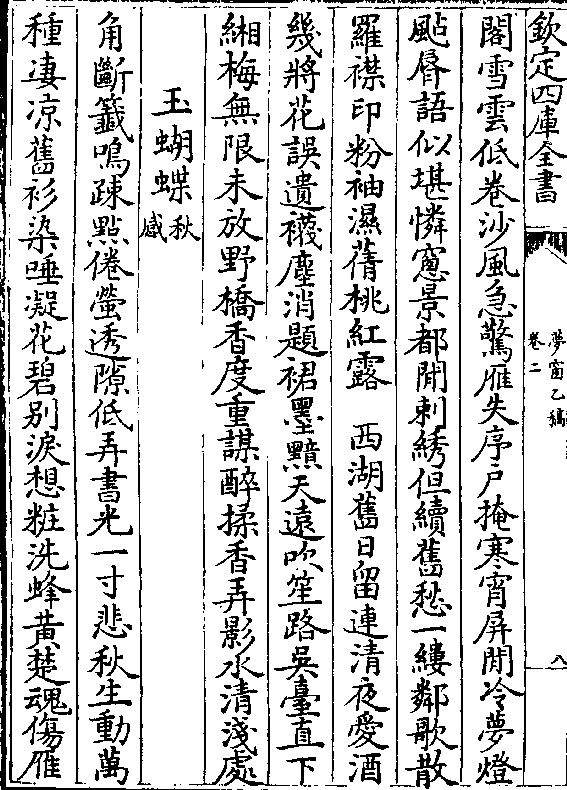 欽定四庫全書
夢窗乙稿
卷二
八
閣雪雲低卷沙風急驚雁失序戶掩寒宵屏閒冷夢燈
颭脣語似堪憐窻景都閒刺綉但續舊愁一縷鄰歌散
羅襟印粉袖濕蒨桃紅露　西湖舊日留連清夜愛酒
幾將花誤遺襪塵消題裙墨黯天遠吹笙路吳臺直下
緗梅無限未放野橋香度重謀醉揉香弄影水清淺處
玉蝴蝶秋感
角斷籖鳴疎點倦螢透隙低弄書光一寸悲秋生動萬
種凄凉舊衫染唾凝花碧别淚想粧洗蜂黃楚魂傷雁